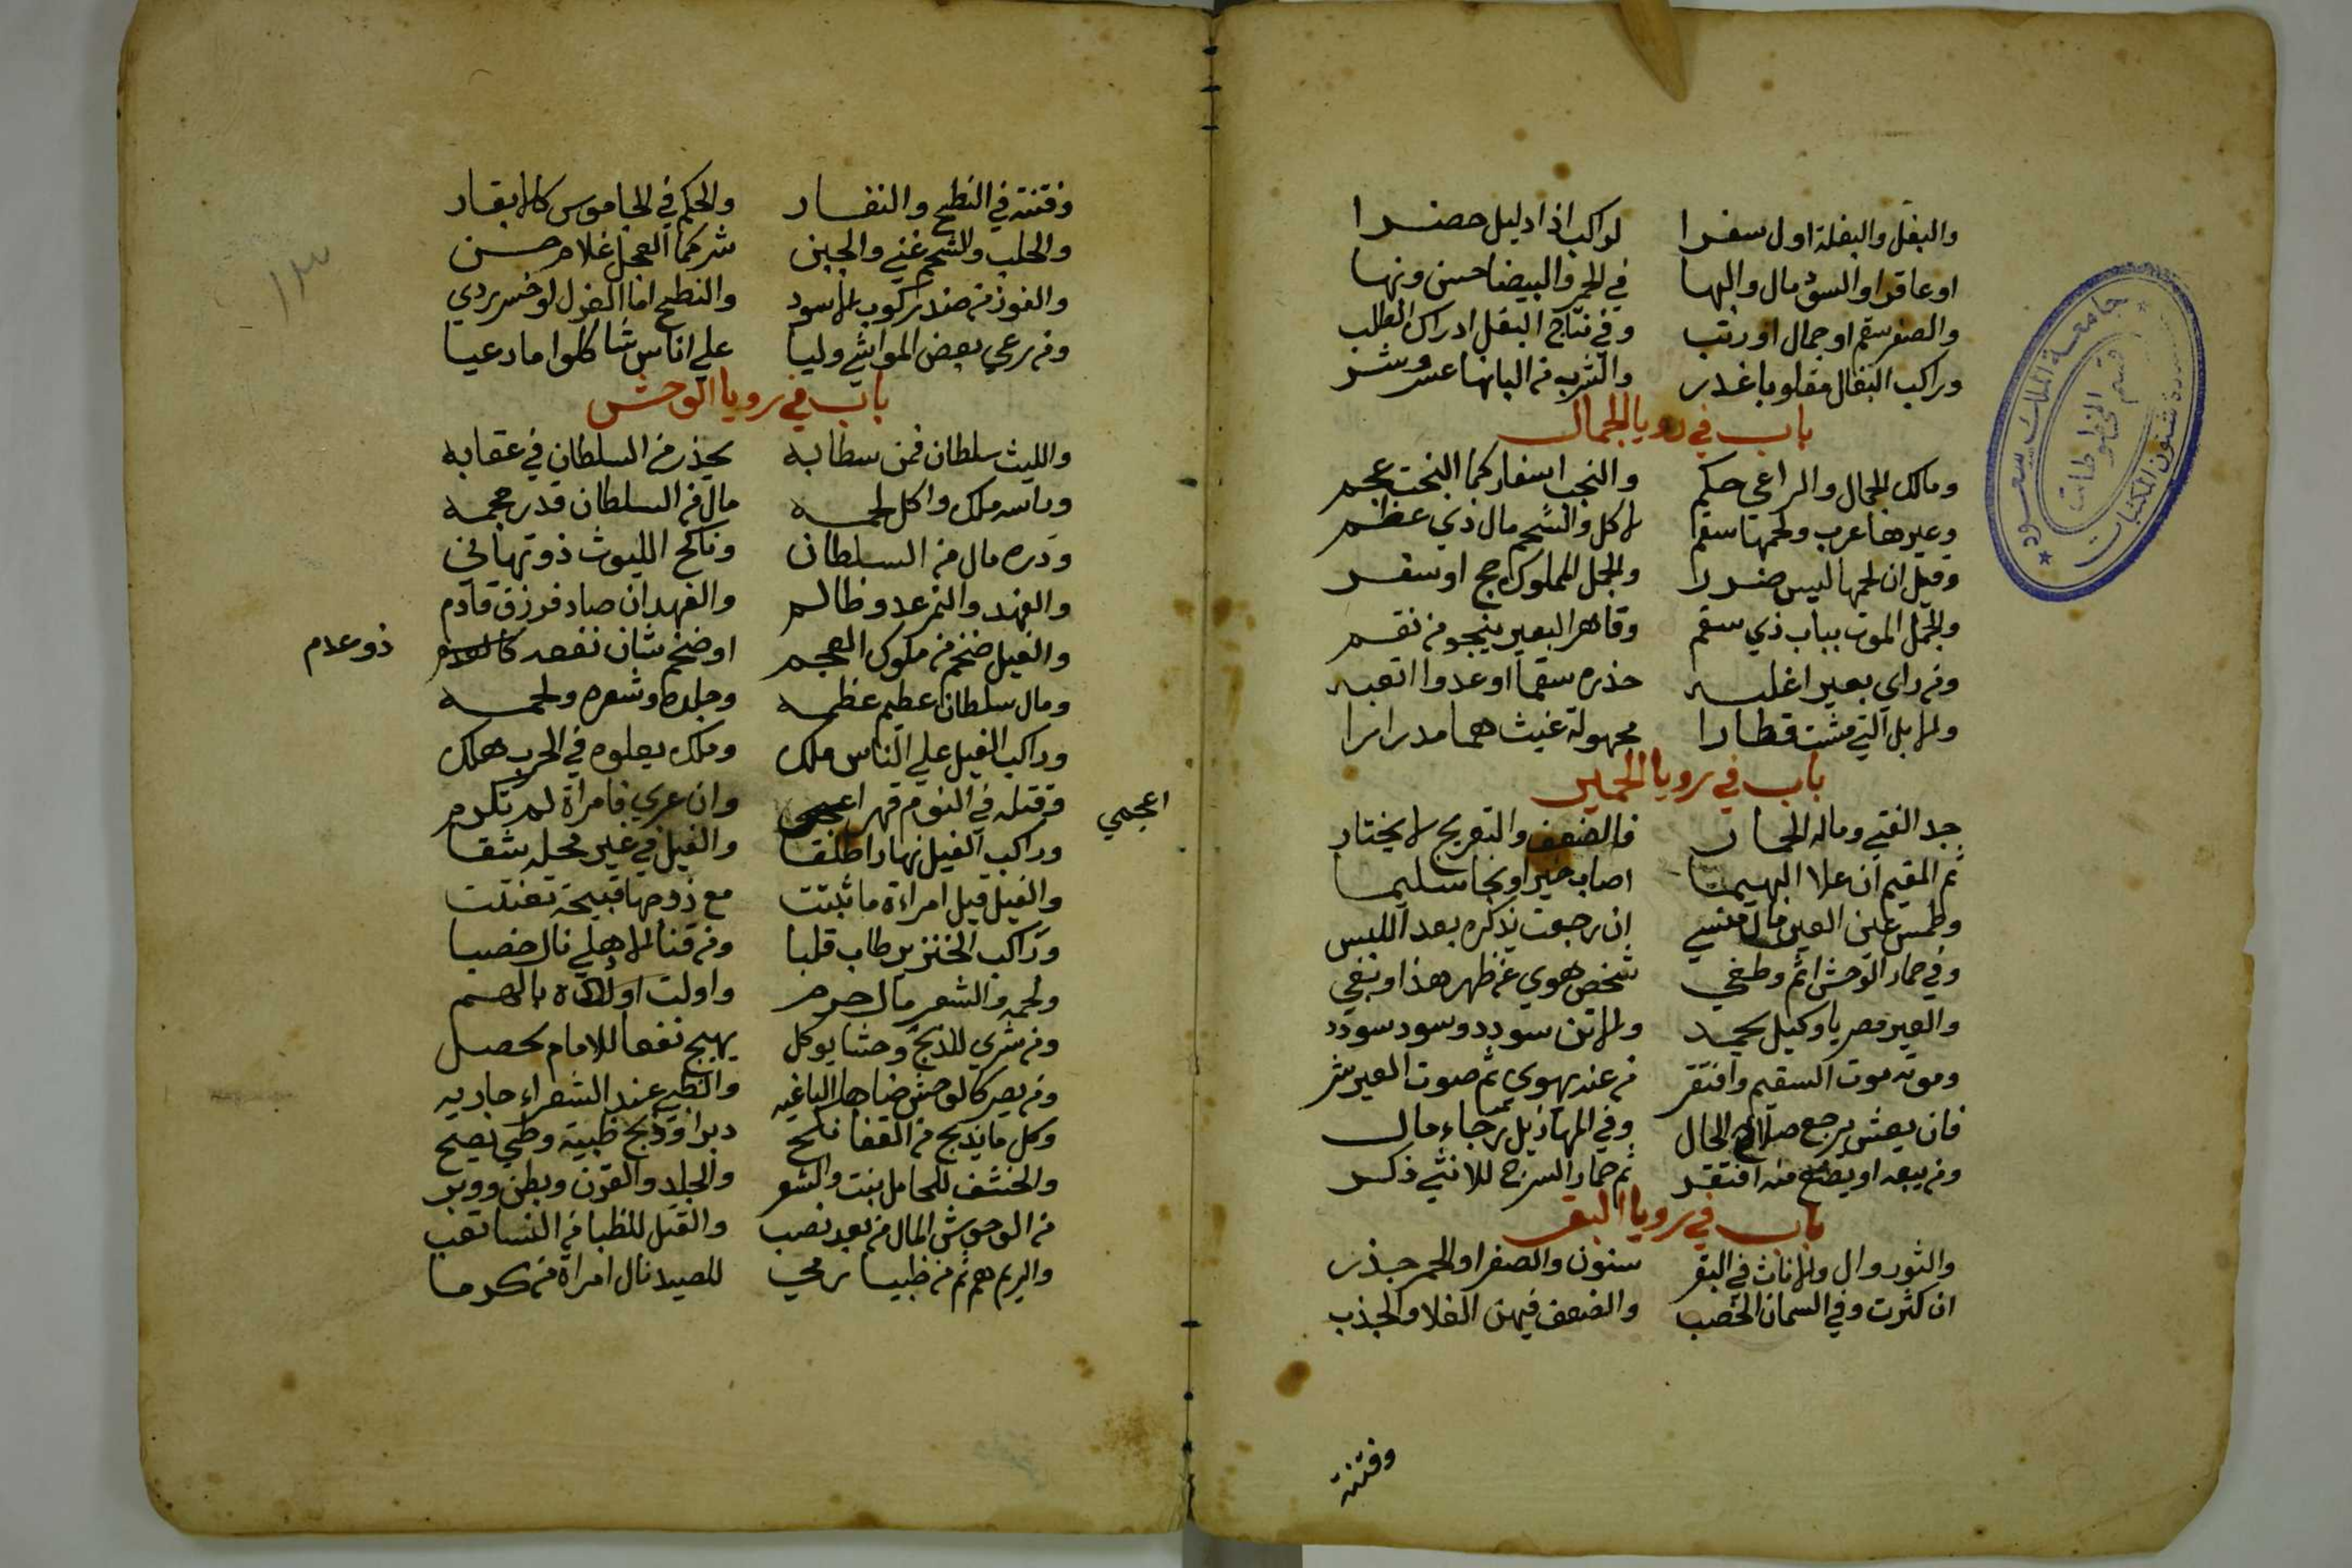 والبغل والبغلة اول سفرا لراكب اذا دليل حضرا
او عاقرا والسود مال والبها في الحمر والبيضا حسن ونها
والصفر سقم او جمال او رتب وفي نتاج البغل ادراك الطلب
وراكب البغال مقلوبا غدر والشرب من البانها عسر وشر
باب في رويا الجمال
ومالك الجمال والراعي حكم والنجب اسفار كما البخت عجم
وعيرها عرب ولحمها سقم لاكل والشحم مال ذي عظم
وقيل ان لحمها ليس ضررا والجمل المملوك حج او سفر
والجمل الموت بباب ذي سقم وقاهر البعير ينجو من نقم
ومن راي بعيرا غلبه حذره سقما او عدوا اتعبه
والابل التي مشت قطارا مجهولة غيث هما مدرارا
باب في رويا الحمير
جد الفتي وماله الحمار فالضعف والتعريج لا يختار
ثم المقيم ان علا البهيما اصاب خيرا ونجا سليما
وطمس عين العير مال منسي ان رجعت يذكره بعد اللبس
وفي حمار الوحش اثم وطغي شخص هوي عن ظهر هذا او بغي
والعير مصريا وكيل يحمد والاتن سودد وسود سودد
وموته موت السقيم وافتقر من عنه يهوي ثم صوت العير شر
فان يعش يرجع صلاح الحال وفي المهازيل رجاء مال
ومن يبعه او يضع منه افتقر ثم حمار السرج للانثي ذكر
باب في رويا البقر
والثور وال والاناث في البقر سنون والصفرا والحمر حذر
ان كثرت وفي السمان الخصب والضعف فيهن الغلا والجدب
وفتنة
وفتنة في النطح والنفار والحكم في الجاموس كالابقار
والحلب والشحم غني والجبن شر كما العجل غلام حسن
والفوز من ضد ركوب الاسود والنطح اما العزل او خسر ردي
ومن رعي بعض المواشي وليا علي اناس شاكلوا ما رعيا
باب في رويا الوحش
والليث سلطان فمن سطا به يحذر من السلطان في عقابه
وراسه ملك واكل لحمه مال من السلطان قدر حجمه
ودره مال من السلطان وناكح الليوث ذو تهاني
والفهد والنمر عدو ظالم والفهد ان صاد فرزق قادم
والفيل ضخم من ملوك العجم او ضخم شان نفعه
ذو علام
ومال سلطان عظيم عظمه وجلده وشعره ولحمه
وراكب الفيل علي الناس ملك وملك يعلوه في الحرب هلك
وقتله في النوم قهر اعجمي وان عري فامراة لم تكرم
اعجمي
وراكب الفيل نهارا طلقا والفيل في غير محله شقا
والفيل قيل امراة ما ثبتت مع زوجها قبيحة تفننت
وراكب الخنزير طاب قلبا ومن قنا الاهلي نال خصبا
ولحمه والشعر مال حرم واولت اولاده بالهم
ومن شري للذبح وحشا يوكل يهيج نفعا للامام يحصل
ومن يصر كالوحش ضاها الباغيه والظبي عند الشعراء جاريه
وكل ما يذبح من القفا نكح دبرا وذبح ظبية وطي يصح
والخشف للحامل بنت والشعر والجلد والقرن وبطن ووبر
من الوحوش المال من بعد نصب والقتل للظبا من النسا تعب
والريم هم ثم من ظبيا رمي للصيد نال امراة من كرما
جامعة الملك سعود
عمادة شئون المكتبات
قسم المخطوطات